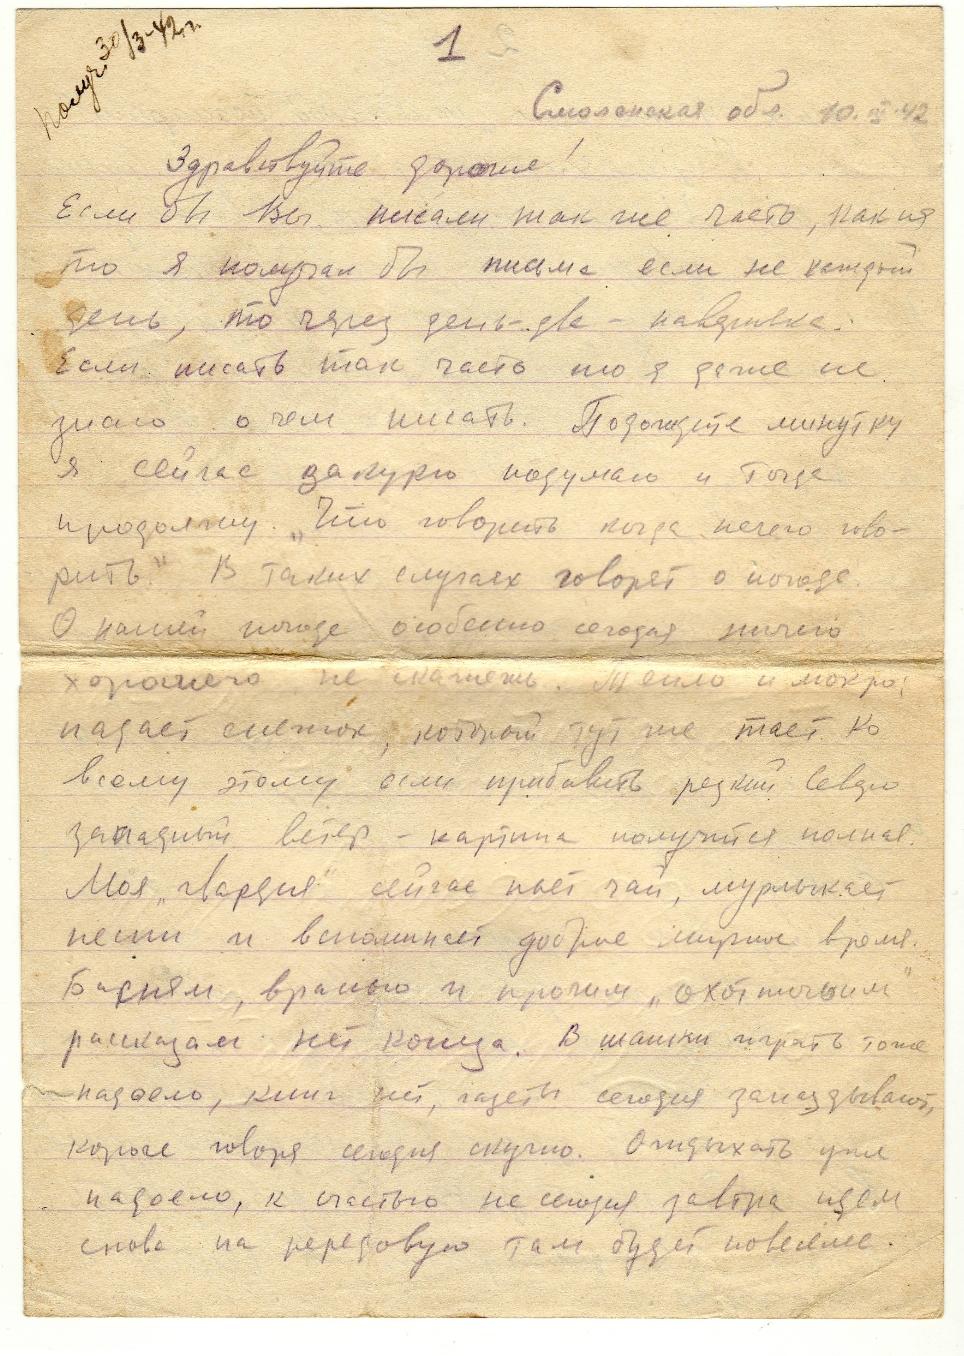 Получ. 30/3-42 г.
1
Смоленская обл. 10.III.42
Здравствуйте дорогие!
Если бы Вы писали так же часто, как я
то я получал бы письма если не каждый
день, то через день-два – наверняка.
Если писать так часто то я даже не
знаю о чем писать. Подождите минутку
я сейчас закурю подумаю и тогда
продолжу. „Что говорить когда нечего гово-
рить." В таких случаях говорят о погоде.
О нашей погоде особенно сегодня ничего
хорошего не скажешь. Тепло и мокро;
падает снежок, который тут же тает. Ко
всему этому если прибавить резкий Северо
западный ветер – картина получится полная.
Моя „гвардия" сейчас пьет чай, мурлыкает
песни и вспоминает доброе мирное время.
Басням, вранью и прочим „охотничьим"
рассказам нет конца. В шашки играть тоже
надоело, книг нет, газеты сегодня запаздывают,
короче говоря сегодня скучно. Отдыхать уже
надоело, к счастью не сегодня завтра идем
снова на передовую там будет повеселее.